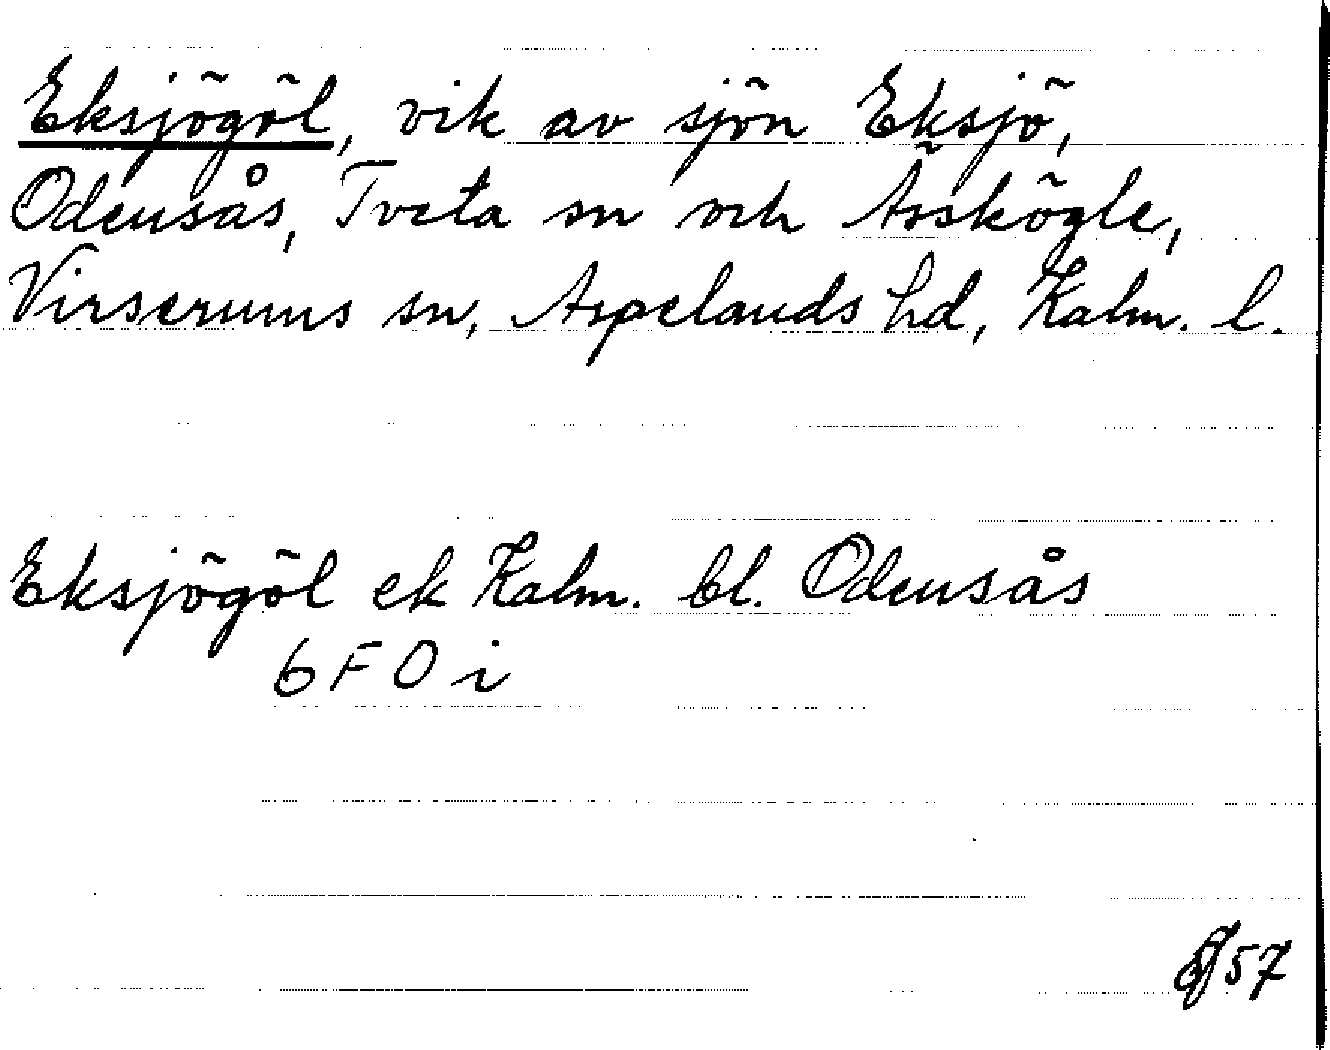 Eksjögöl, vik av sjön Eksjö,
Odensås, Tveta sn och Ässkögle,
Virserums sn, Aspelands hd, Kalm. l.
Eksjögöl ek Kalm. bl. Odensås
6 F 0 i
57